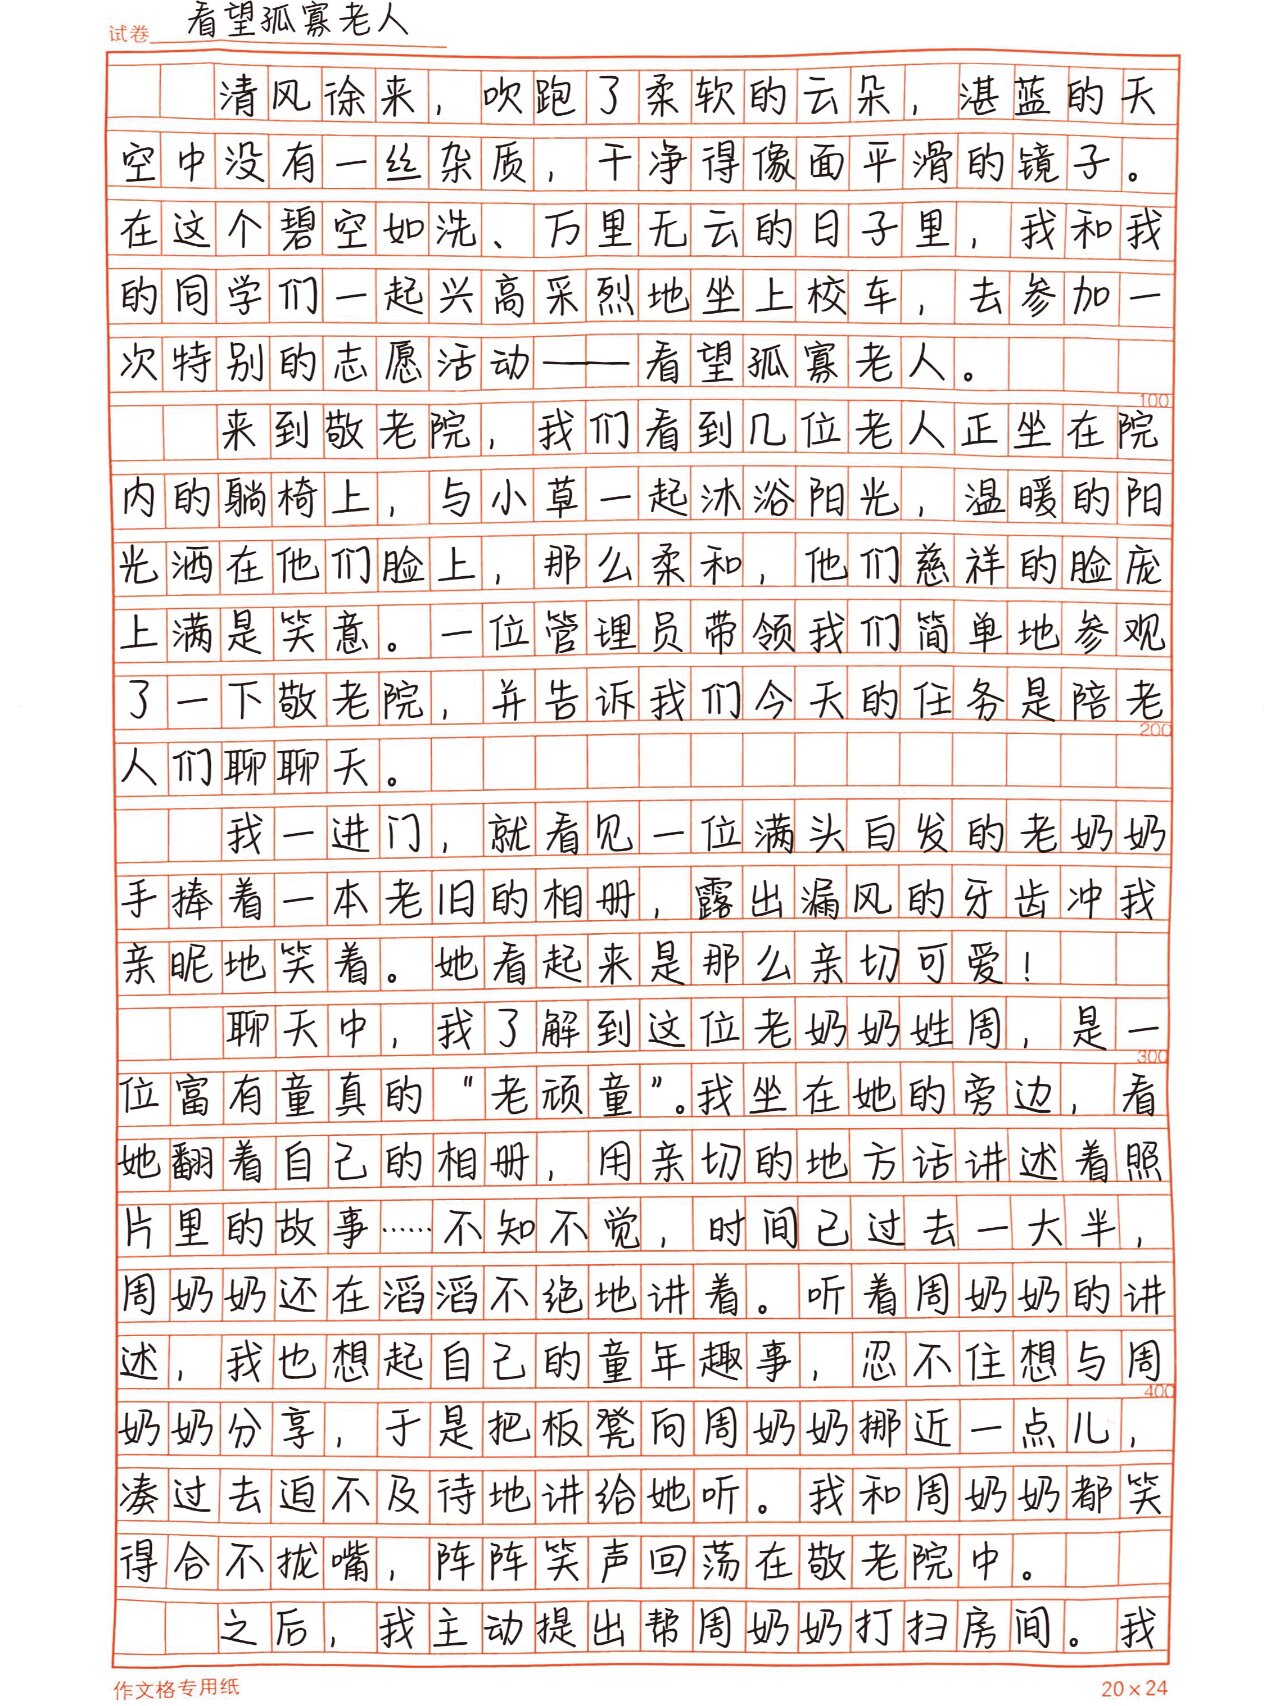 试卷 看望孤寡老人
清风徐来，吹跑了柔软的云朵，湛蓝的天
空中没有一丝杂质，干净得像面平滑的镜子。
在这个碧空如洗、万里无云的日子里，我和我
的同学们一起兴高采烈地坐上校车，去参加一
次特别的志愿活动——看望孤寡老人。
100
来到敬老院，我们看到几位老人正坐在院
内的躺椅上，与小草一起沐浴阳光，温暖的阳
光洒在他们脸上，那么柔和，他们慈祥的脸庞
上满是笑意。一位管理员带领我们简单地参观
了一下敬老院，并告诉我们今天的任务是陪老
200
人们聊聊天。
我一进门，就看见一位满头白发的老奶奶
手捧着一本老旧的相册，露出漏风的牙齿冲我
亲昵地笑着。她看起来是那么亲切可爱！
聊天中，我了解到这位老奶奶姓周，是一
300
位富有童真的“老顽童”。我坐在她的旁边，看
她翻着自己的相册，用亲切的地方话讲述着照
片里的故事……不知不觉，时间已过去一大半，
周奶奶还在滔滔不绝地讲着。听着周奶奶的讲
述，我也想起自己的童年趣事，忍不住想与周
400
奶奶分享，于是把板凳向周奶奶挪近一点儿，
凑过去迫不及待地讲给她听。我和周奶奶都笑
得合不拢嘴，阵阵笑声回荡在敬老院中。
之后，我主动提出帮周奶奶打扫房间。我
作文格专用纸 20×24